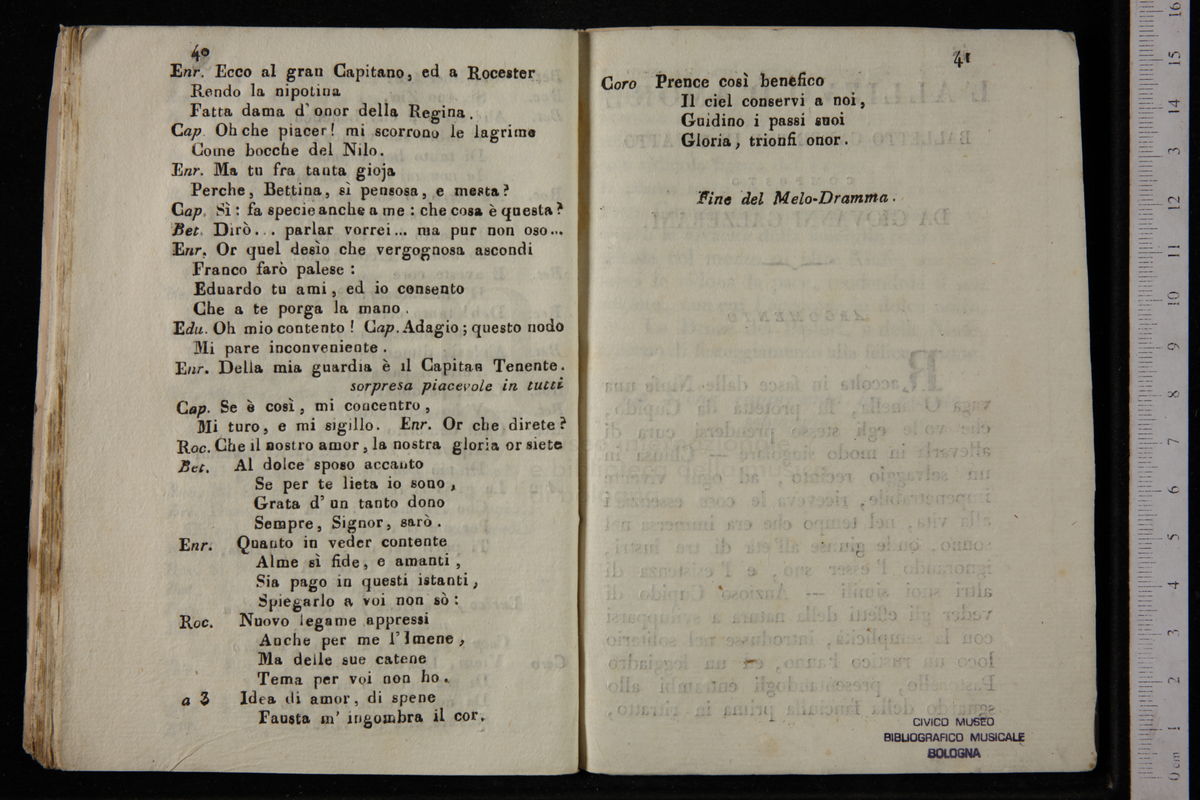 40
Enr. Ecco al gran Capitano, ed a Rocester
Rendo la nipotina
Fatta dama d' onor della Regina.
Cap. Oh che piacer! mi scorrono le lagrime
Come bocche del Nilo.
Enr. Ma tu fra tanta gioja
Perche, Bettina, sì pensosa, e mesta?
Cap. Sì: fa specie anche a me: che cosa è questa?
Bet. Dirò... parlar vorrei... ma pur non oso...
Enr. Or quel desìo che vergognosa ascondi
Franco farò palese:
Eduardo tu ami, ed io consento
Che a te porga la mano.
Edu. Oh mio contento! Cap. Adagio; questo nodo
Mi pare inconveniente.
Enr. Della mia guardia è il Capitan Tenente.
sorpresa piacevole in tutti
Cap. Se è così, mi concentro,
Mi turo, e mi sigillo. Enr. Or che direte?
Roc. Che il nostro amor, la nostra gloria or siete
Bet. Al dolce sposo accanto
Se per te lieta io sono,
Grata d' un tanto dono
Sempre, Signor, sarò.
Enr. Quanto in veder contente
Alme sì fide, e amanti,
Sia pago in questi istanti,
Spiegarlo a voi non sò:
Roc. Nuovo legame appressi
Anche per me l'Imene,
Ma delle sue catene
Tema per voi non ho.
a 3 Idea di amor, di spene
Fausta m' ingombra il cor.
41
Coro Prence così benefico
Il ciel conservi a noi,
Guidino i passi suoi
Gloria, trionfi onor.
Fine del Melo-Dramma.
CIVICO MUSEO
BIBLIOGRAFICO MUSICALE
BOLOGNA
0 cm 1 2 3 4 5 6 7 8 9 10 11 12 3 14 15 16